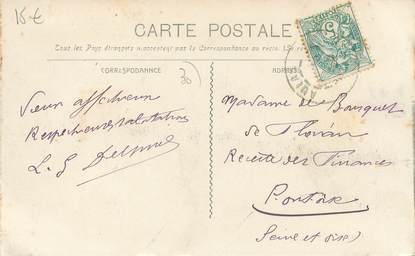 15€
CARTE POSTALE
Tous les Pays étrangers n'acceptent pas la Correspondance au recto.
CORRESPONDANCE
30
ADRES
5
Vœux affectueux
Respectueuses salutations
L. G
Madame de Bousquet
de Florian
Recette des Finances
Pontoise
(Seine et Oise)